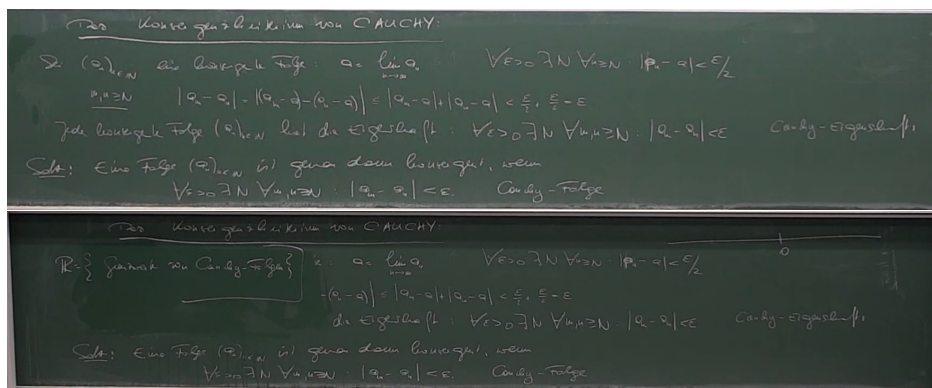 Das Konvergenzkriterium von CAUCHY:
Sei (aₙ)ₙ∈ℕ eine konvergente Folge: a = lim aₙ n→∞ ∀ε>0 ∃N ∀n≥N : |aₙ - a| < ε/2
m,n≥N |aₘ - aₙ| = |(aₘ - a) - (aₙ - a)| ≤ |aₘ - a| + |aₙ - a| < ε/2 + ε/2 = ε
Jede konvergente Folge (aₙ)ₙ∈ℕ hat die Eigenschaft : ∀ε>0 ∃N ∀m,n≥N : |aₘ - aₙ| < ε Cauchy-Eigenschaft
Satz: Eine Folge (aₙ)ₙ∈ℕ ist genau dann konvergent, wenn
∀ε>0 ∃N ∀m,n≥N : |aₘ - aₙ| < ε. Cauchy-Folge
Das Konvergenzkriterium von CAUCHY:
0
ℝ = { Grenzwerte von Cauchy-Folgen } a = lim aₙ n→∞ ∀ε>0 ∃N ∀n≥N : |aₙ - a| < ε/2
-(aₙ - a)| ≤ |aₘ - a| + |aₙ - a| < ε/2 + ε/2 = ε
die Eigenschaft : ∀ε>0 ∃N ∀m,n≥N : |aₘ - aₙ| < ε Cauchy-Eigenschaft
Satz: Eine Folge (aₙ)ₙ∈ℕ ist genau dann konvergent, wenn
∀ε>0 ∃N ∀m,n≥N : |aₘ - aₙ| < ε. Cauchy-Folge